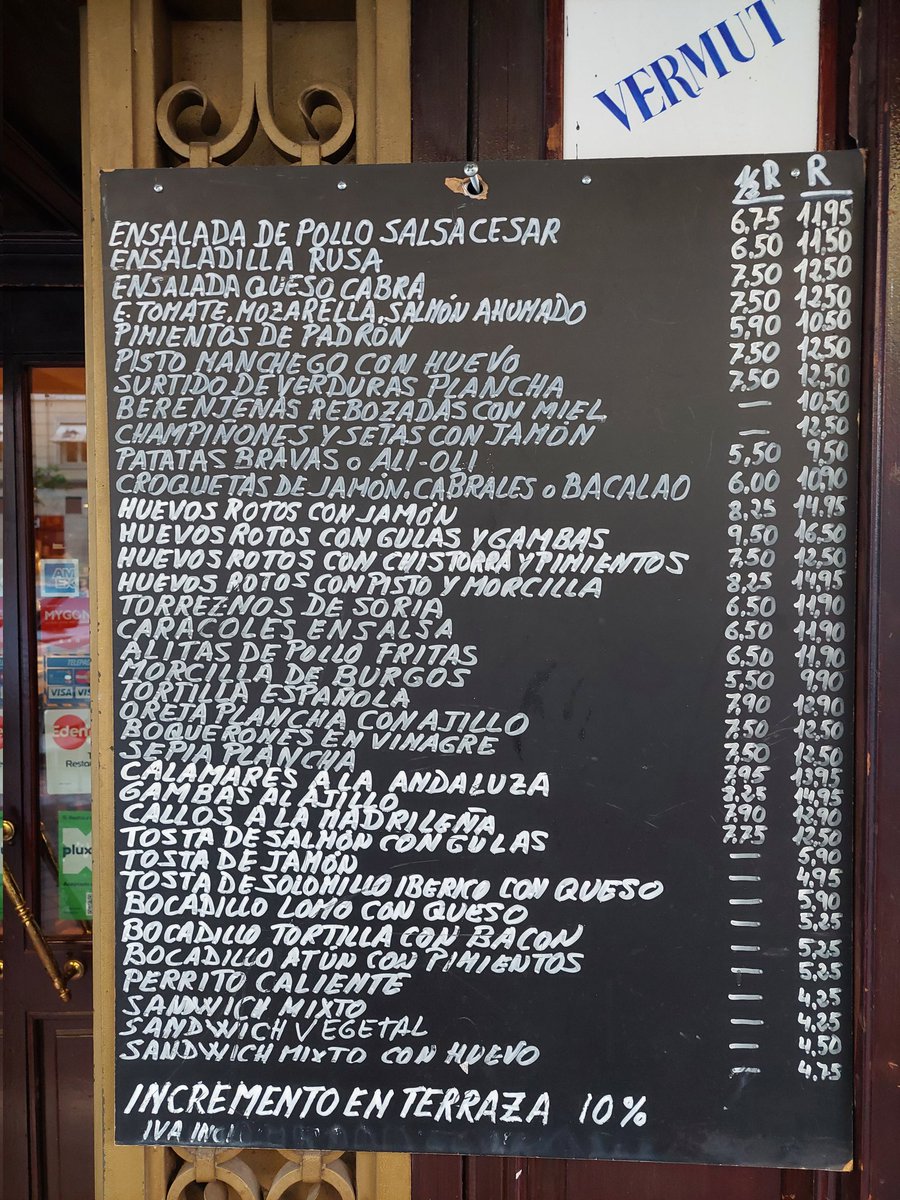 VERMUT
½R R
ENSALADA DE POLLO SALSA CESAR 6,75 11,95
ENSALADILLA RUSA 6,50 11,50
ENSALADA QUESO CABRA 7,50 12,50
E. TOMATE. MOZARELLA. SALMÓN AHUMADO 7,50 12,50
PIMIENTOS DE PADRÓN 5,90 10,50
PISTO MANCHEGO CON HUEVO 7,50 12,50
SURTIDO DE VERDURAS PLANCHA 7,50 12,50
BERENJENAS REBOZADAS CON MIEL — 10,50
CHAMPIÑONES Y SETAS CON JAMÓN — 12,50
PATATAS BRAVAS o ALI-OLI 5,50 9,50
CROQUETAS DE JAMÓN. CABRALES o BACALAO 6,00 10,90
HUEVOS ROTOS CON JAMÓN 8,25 14,95
HUEVOS ROTOS CON GULAS Y GAMBAS 9,50 16,50
HUEVOS ROTOS CON CHISTORRA Y PIMIENTOS 7,50 12,50
HUEVOS ROTOS CON PISTO Y MORCILLA 8,25 14,95
TORREZNOS DE SORIA 6,50 11,90
CARACOLES EN SALSA 6,50 11,90
ALITAS DE POLLO FRITAS 6,50 11,90
MORCILLA DE BURGOS 5,50 9,90
TORTILLA ESPAÑOLA 7,90 12,90
OREJA PLANCHA CON AJILLO 7,50 12,50
BOQUERONES EN VINAGRE 7,50 12,50
SEPIA PLANCHA 7,95 13,95
CALAMARES A LA ANDALUZA 8,25 14,95
GAMBAS AL AJILLO 7,90 12,90
CALLOS A LA MADRILEÑA 7,75 12,50
TOSTA DE SALMÓN CON GULAS — 5,90
TOSTA DE JAMÓN — 4,95
TOSTA DE SOLOMILLO IBERICO CON QUESO — 5,90
BOCADILLO LOMO CON QUESO — 5,25
BOCADILLO TORTILLA CON BACON — 5,25
BOCADILLO ATÚN CON PIMIENTOS — 5,25
PERRITO CALIENTE — 4,25
SANDWICH MIXTO — 4,25
SANDWICH VEGETAL — 4,50
SANDWICH MIXTO CON HUEVO — 4,75
INCREMENTO EN TERRAZA 10%
IVA
VISA
plux